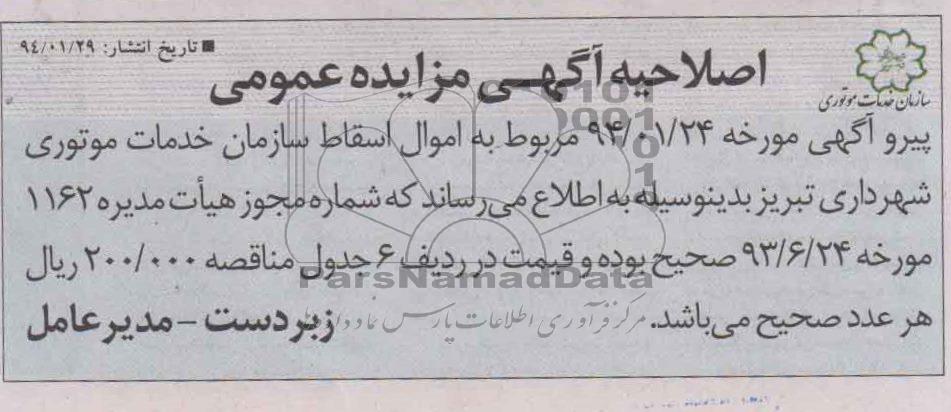 ■ تاریخ انتشار: ۹۴/۰۱/۲۹
اصلاحیه آگهی مزایده عمومی
سازمان خدمات موتوری
پیرو آگهی مورخه ۹۴/۰۱/۲۴ مربوط به اموال اسقاط سازمان خدمات موتوری
شهرداری تبریز بدینوسیله به اطلاع می‌رساند که شماره مجوز هیأت مدیره ۱۱۶۲
مورخه ۹۳/۶/۲۴ صحیح بوده و قیمت در ردیف ۶ جدول مناقصه ۲۰۰/۰۰۰ ریال
ParsNamadData
هر عدد صحیح می‌باشد.
مرکز فرآوری اطلاعات پارس نماد داده‌ها
زبردست - مدیرعامل